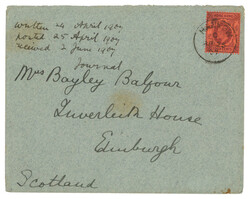 written 24 April 190
posted 25 April 190
received 2 June 190
Journal
Mrs Bayley Balfour
Inverleith House
Edinburgh
Scotland